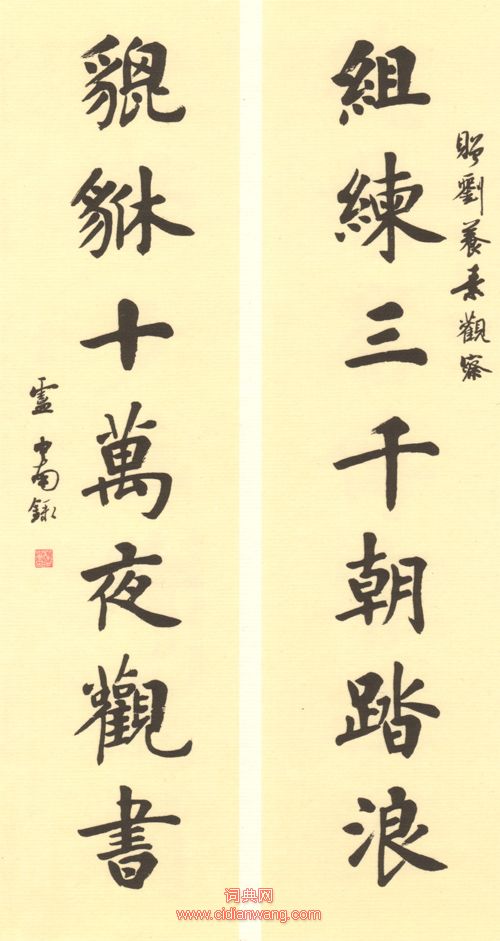 贈劉養素觀察
組練三千朝踏浪
貔貅十萬夜觀書
盧中南錄
词典网
www.cidianwang.com